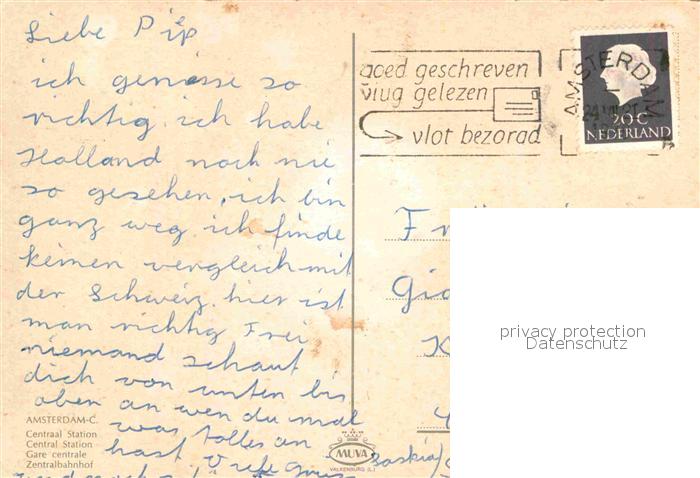 Liebe Pip
ich geniesse so
richtig. ich habe
Holland noch nie
so gesehen, ich bin
ganz weg. ich finde
keinen vergleich mit
der Schweiz. hier ist
man richtig Frei
niemand schaut
dich von unten bis
oben an wen du mal
was tolles an
hast. Viele
AMSTERDAM-C.
Centraal Station
Central Station
Gare centrale
Zentralbahnhof
MUVA
VALKENBURG (L.)
goed geschreven
vlug gelezen
vlot bezorgd
AMSTERDAM
20 C
NEDERLAND
privacy protection
Datenschutz
saskia/